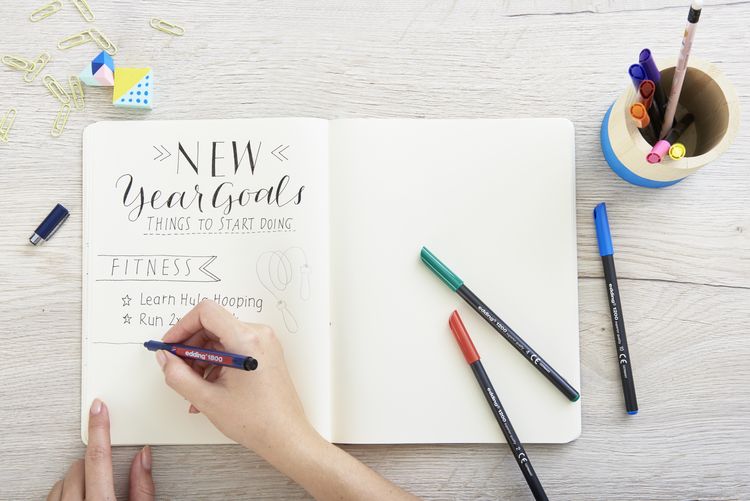 NEW
Year Goals
THINGS TO START DOING
FITNESS
Learn Hula Hooping
Run 2x
edding 1800
edding 1200
edding 1200
CE
CE
CE